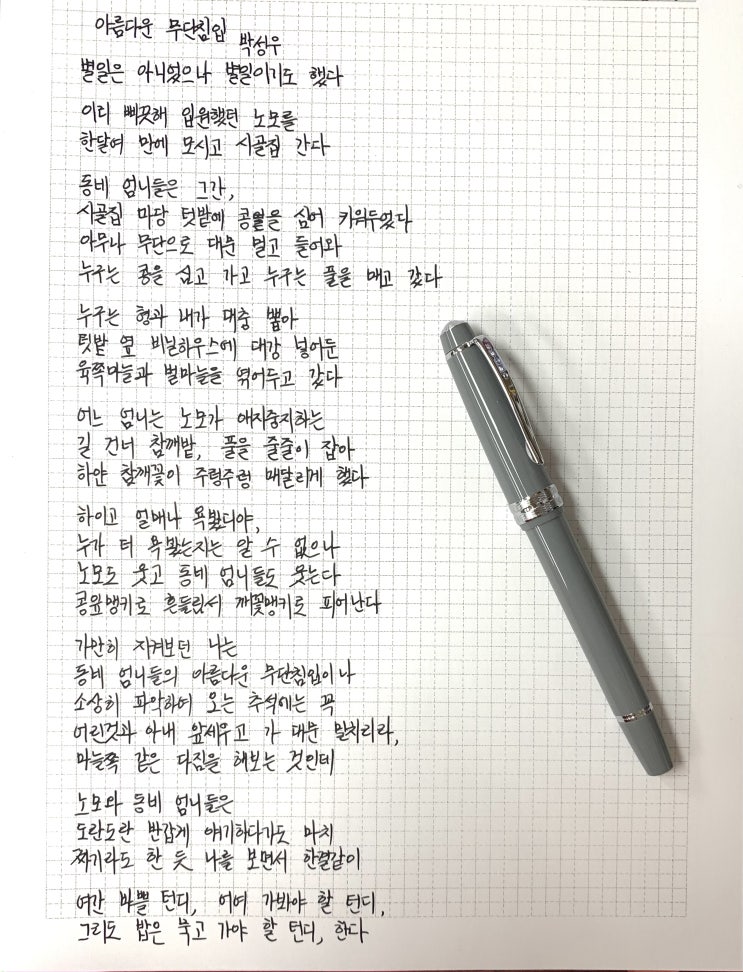 아름다운 무단침입
박성우
별일은 아니었으나 별일이기도 했다
허리 삐끗해 입원했던 노모를
한달여 만에 모시고 시골집 간다
동네 엄니들은 그간,
시골집 마당 텃밭에 콩을 심어 키워두었다
아무나 무단으로 대문 밀고 들어와
누구는 콩을 심고 가고 누구는 풀을 매고 갔다
누구는 형과 내가 대충 뽑아
텃밭 옆 비닐하우스에 대강 넣어둔
육쪽마늘과 벌마늘을 엮어두고 갔다
어느 엄니는 노모가 애지중지하는
길 건너 참깨밭, 풀을 줄줄이 잡아
하얀 참깨꽃이 주렁주렁 매달리게 했다
하이고 얼매나 욕봤디야,
누가 더 욕봤는지는 알 수 없으나
노모도 웃고 동네 엄니들도 웃는다
콩잎맹키로 흔들림서 깨꽃맹키로 피어난다
가만히 지켜보던 나는
동네 엄니들의 아름다운 무단침입이나
소상히 파악하여 오는 추석에는 꼭
어린것과 아내 앞세우고 가 대문 밀치리라,
마늘쪽 같은 다짐을 해보는 것인데
노모와 동네 엄니들은
도란도란 반갑게 얘기하다가도 마치
짜기라도 한 듯 나를 보면서 한결같이
여간 바쁠 턴디, 어여 가봐야 할 턴디,
그리도 밥은 묵고 가야 할 턴디, 한다